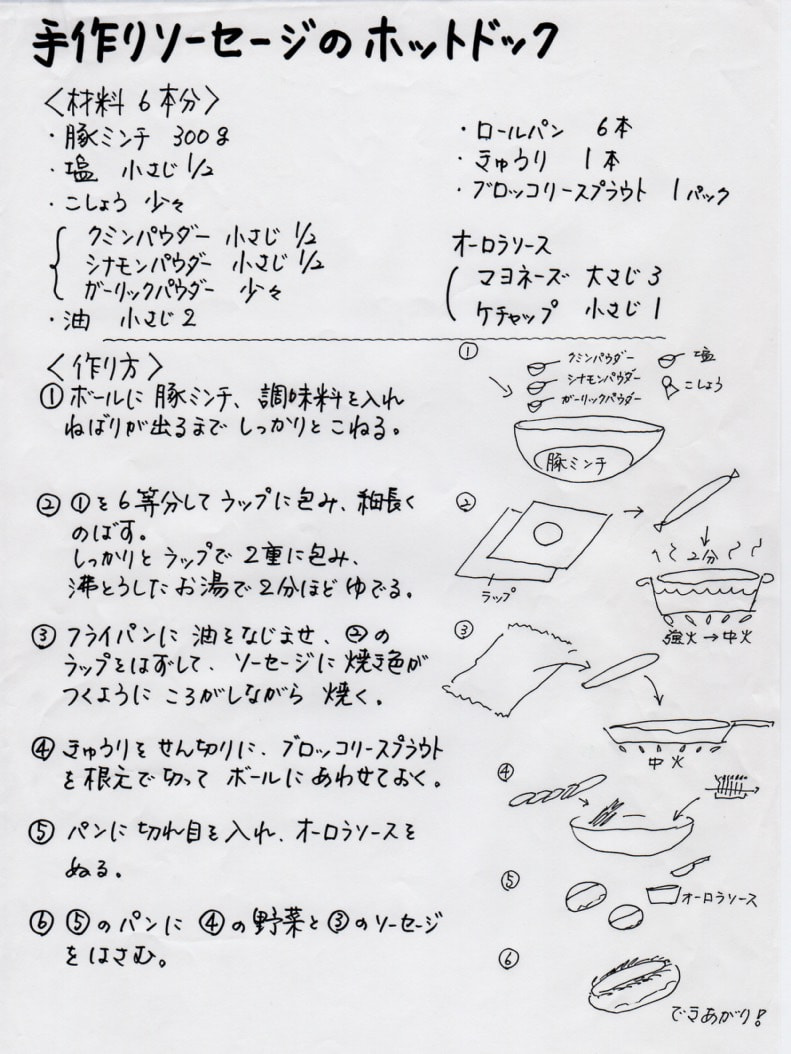 手作りソーセージのホットドック
〈材料 6本分〉
・豚ミンチ 300g
・塩 小さじ 1/2
・こしょう 少々
クミンパウダー 小さじ 1/2
シナモンパウダー 小さじ 1/2
ガーリックパウダー 少々
・油 小さじ 2
・ロールパン 6本
・きゅうり 1本
・ブロッコリースプラウト 1パック
オーロラソース
マヨネーズ 大さじ 3
ケチャップ 小さじ 1
〈作り方〉
① ボールに 豚ミンチ、調味料を入れ
ねばりが出るまで しっかりと こねる。
② ①を6等分して ラップに包み、細長く
のばす。
しっかりと ラップで 2重に包み、
沸とうした お湯で 2分ほど ゆでる。
③ フライパンに 油をなじませ、②の
ラップをはずして、ソーセージに 焼き色が
つくように ころがしながら 焼く。
④ きゅうりを せん切りに、ブロッコリースプラウト
を根元で切って ボールに あわせておく。
⑤ パンに 切れ目を入れ、オーロラソースを
ぬる。
⑥ ⑤のパンに ④の野菜と③のソーセージ
をはさむ。
①
クミンパウダー
シナモンパウダー
ガーリックパウダー
塩
こしょう
豚ミンチ
②
ラップ
2分
強火→中火
③
中火
④
⑤
オーロラソース
⑥
できあがり!